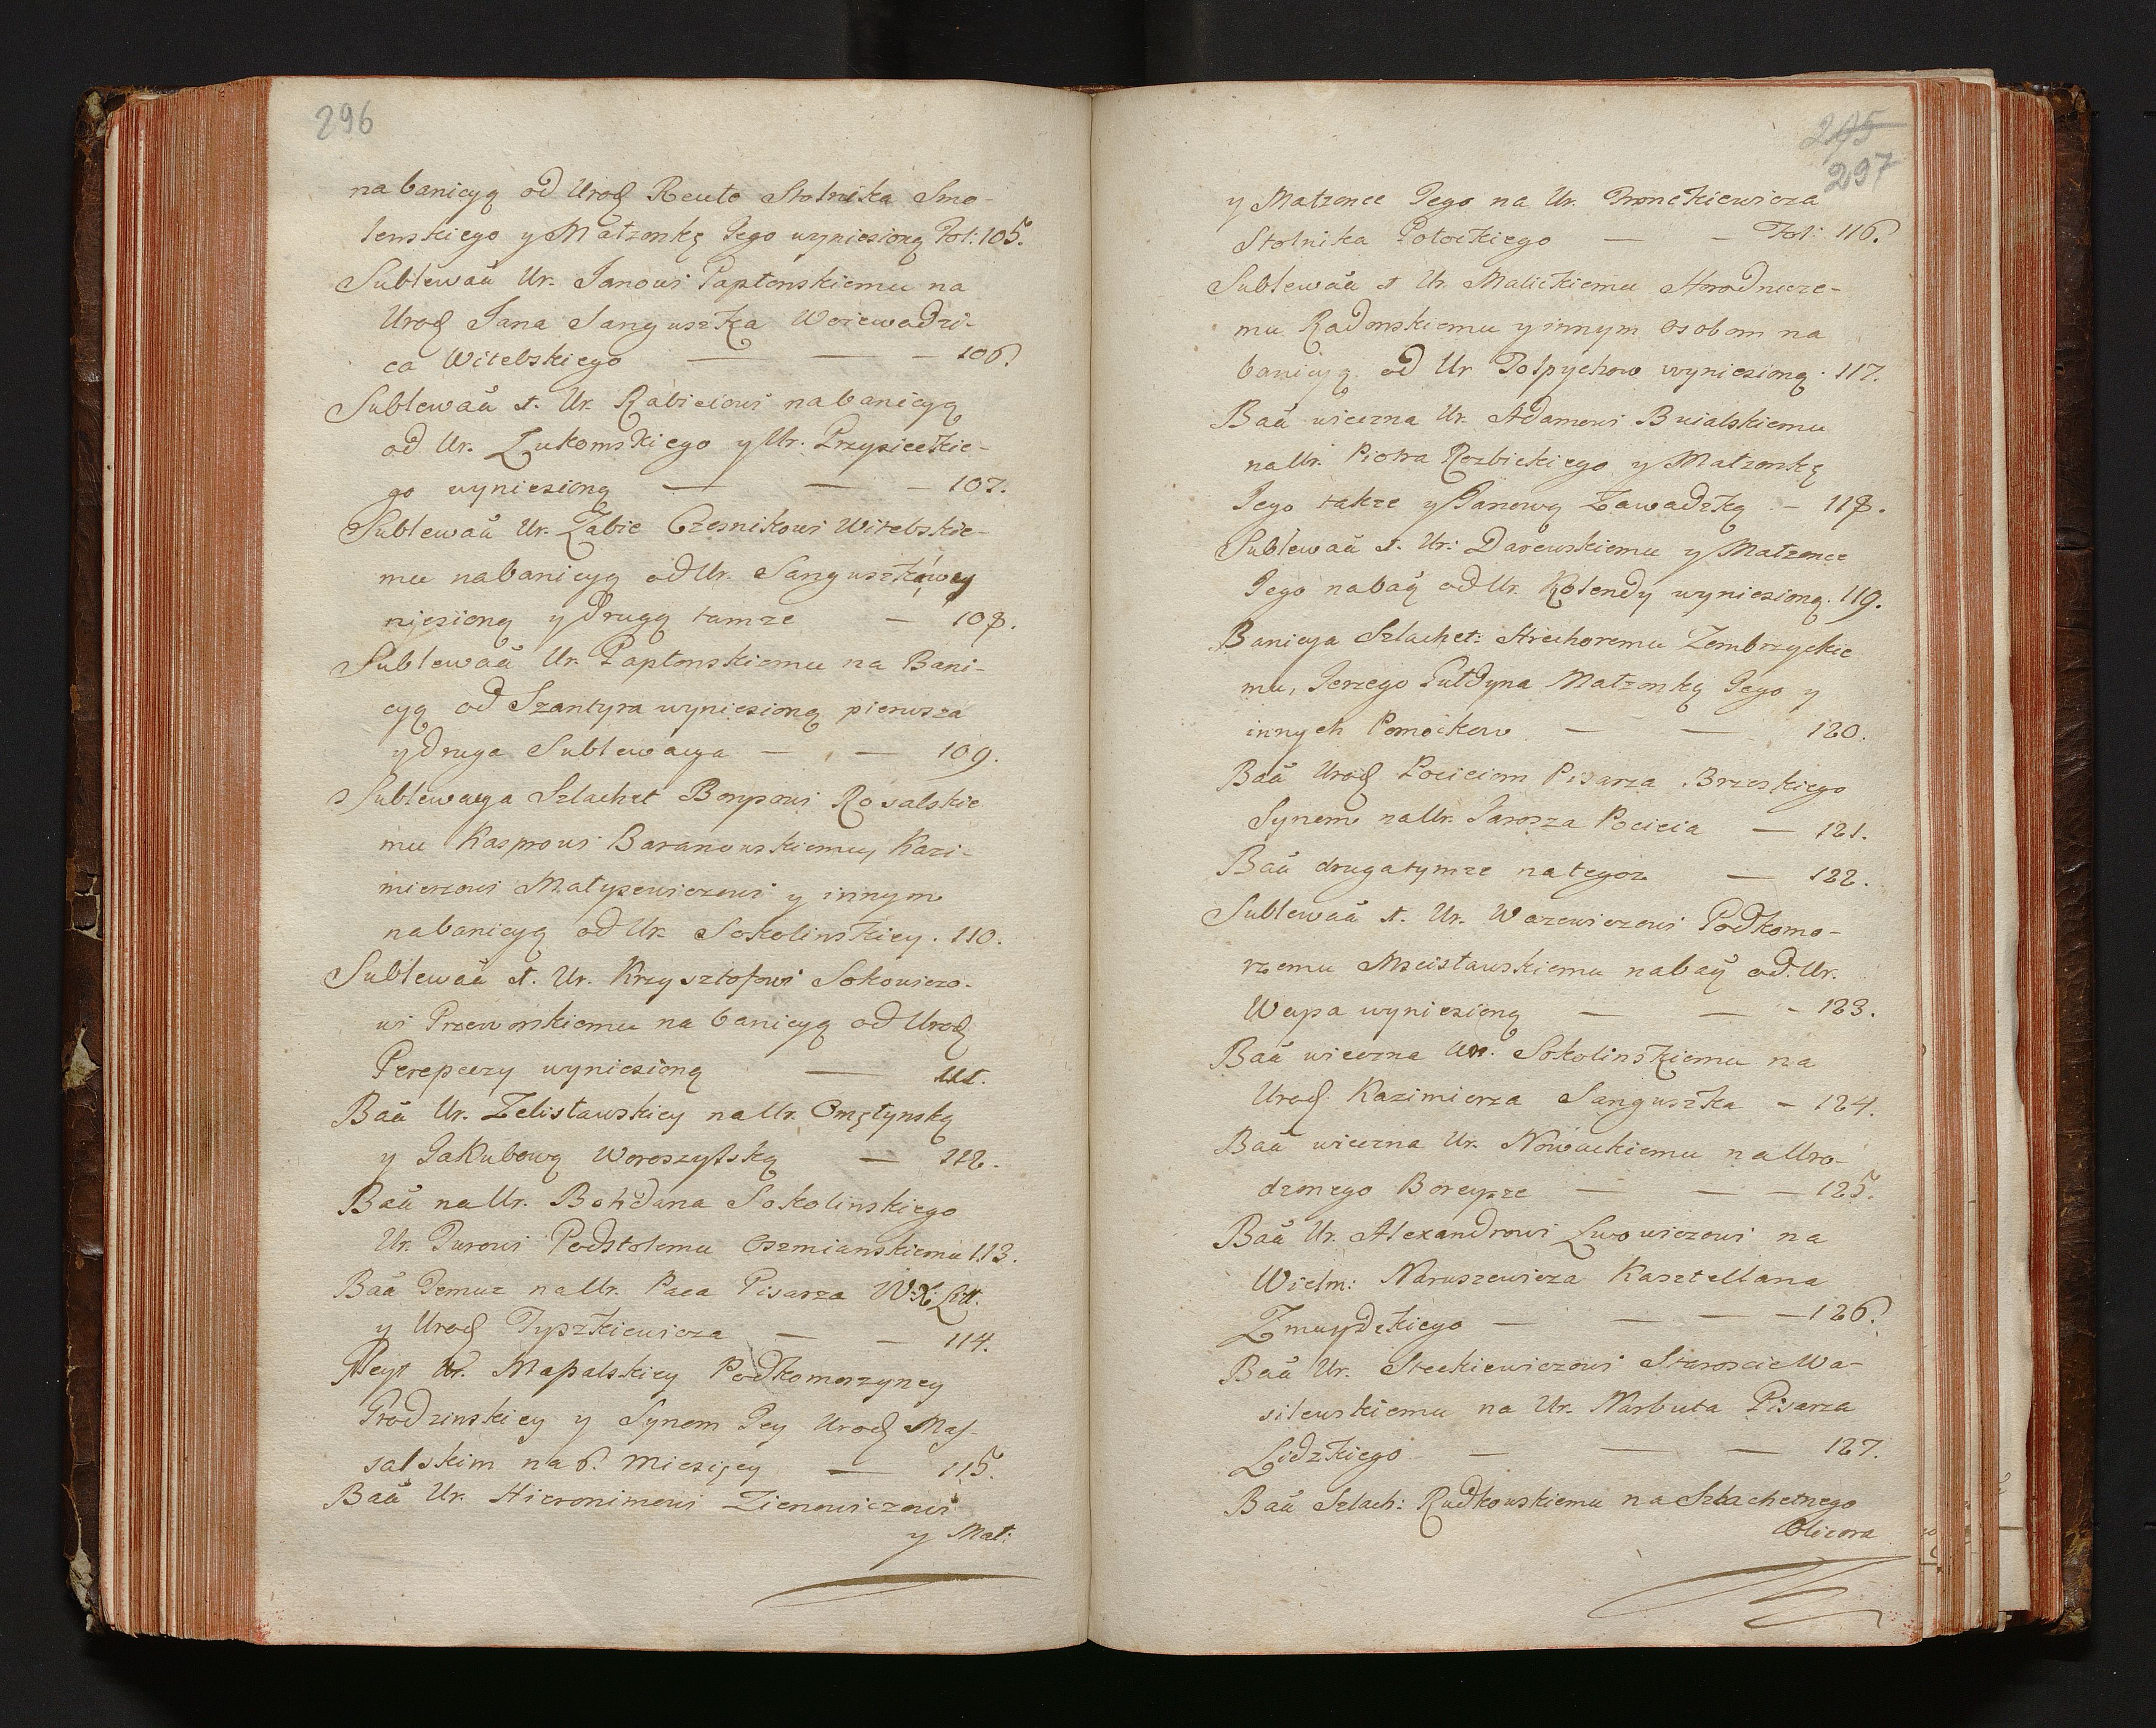 296
na banicyą od Urodz Reuto Stolnika Smo-
lenskiego y Małzonkę Jego wyniesioną Fol: 105.
Sublewaã Ur. Janowi Papłonskiemu na
Urodz Jana Sanguszka Woiewodzi-
ca Witebskiego — — — 106.
Sublewaã t. Ur. Rabieiowi na banicyą
od Ur. Łukomskiego y Ur. Przysieckie-
go wyniesioną — — — 107.
Sublewaã Ur. Zabie Czesnikowi Witebskie-
mu na banicyą od Ur. Sanguszkowey
niesioną y drugą tamze — 108.
Sublewaã Ur. Papłonskiemu na Bani-
cyą od Szantyra wyniesioną pierwsza
y druga Sublewacya — — 109.
Sublewacya Szlachet Rosalskie
mu Kasprowi Baranowskiemu, Kazi-
mierzowi Matyszewiczowi y innym
na banicyą od Ur. Sokolinskiey. 110.
Sublewaã t. Ur. Krzysztofowi Sokowiczo-
wi Przeworskiemu na banicyą od Urodz
Perepeczy wyniesioną — 111.
Baã Ur. Zelisławskiey na Ur. Omętynską
y Jakubową — 112.
Baã na Ur. Bohdana Sokolinskiego
Ur. Jurowi Podstolemu Oszmianskiemu 113.
Baã Jemuz na Ur. Paca Pisarza W: X: Litt.
y Urodz Tyszkiewicza — — 114.
Ur. Massalskiey Podkomorzyney
Grodzinskiey y Synom Jey Urodz Mas-
salskim na 6. Miesięcy — 115.
Baã Ur. Hieronimowi Zienowiczowi
y Mał:
295
297
y Małzonce Jego na Ur. Fronckiewicza
Stolnika Połockiego — — Fol: 116.
Sublewaã t Ur. Malickiemu Horodnicze-
mu Radomskiemu y innym osobom na
banicyą od Ur Pospychow wyniesioną. 117.
Baã wieczna Ur. Adamowi Buialskiemu
na Ur. Piotra Rozbickiego y Małzonkę
Jego takze y Janową Zawadzką — 118.
Sublewaã t. Ur: Darewskiemu y Małzonce
Jego na baã od Ur. Kolendy wyniesioną. 119.
Banicya Szlachet: Hrehoremu Zembrzyckie
mu, Jerzego Gutdyna Małzonkę Jego y
innych Pomockow — — 120.
Baã Urodz Pocieiom Pisarza Brzeskiego
Synom na Ur. Jarosza Pocieia — 121.
Baã druga tymze na tegoz — 122.
Sublewaã t. Ur. Wazewiczowi Podkomo-
rzemu Mscisławskiemu na baã od Ur.
wyniesioną — — — 123.
Baã wieczna Ur. Sokolinskiemu na
Urodz Kazimierza Sanguszka — 124.
Baã wieczna Ur. Nowackiemu na Uro-
dzonego — — — 125.
Baã Ur. Alexandrowi Lwowiczowi na
Wielm: Naruszewicza Kasztellana
Zmuydzkiego — — — — 126.
Baã Ur. Steckiewiczowi Staroscie Wa-
silewskiemu na Ur. Narbuta Pisarza
Lidzkiego — — — 127.
Baã Szlach: Rudkowskiemu na Szlachetnego
Olizora